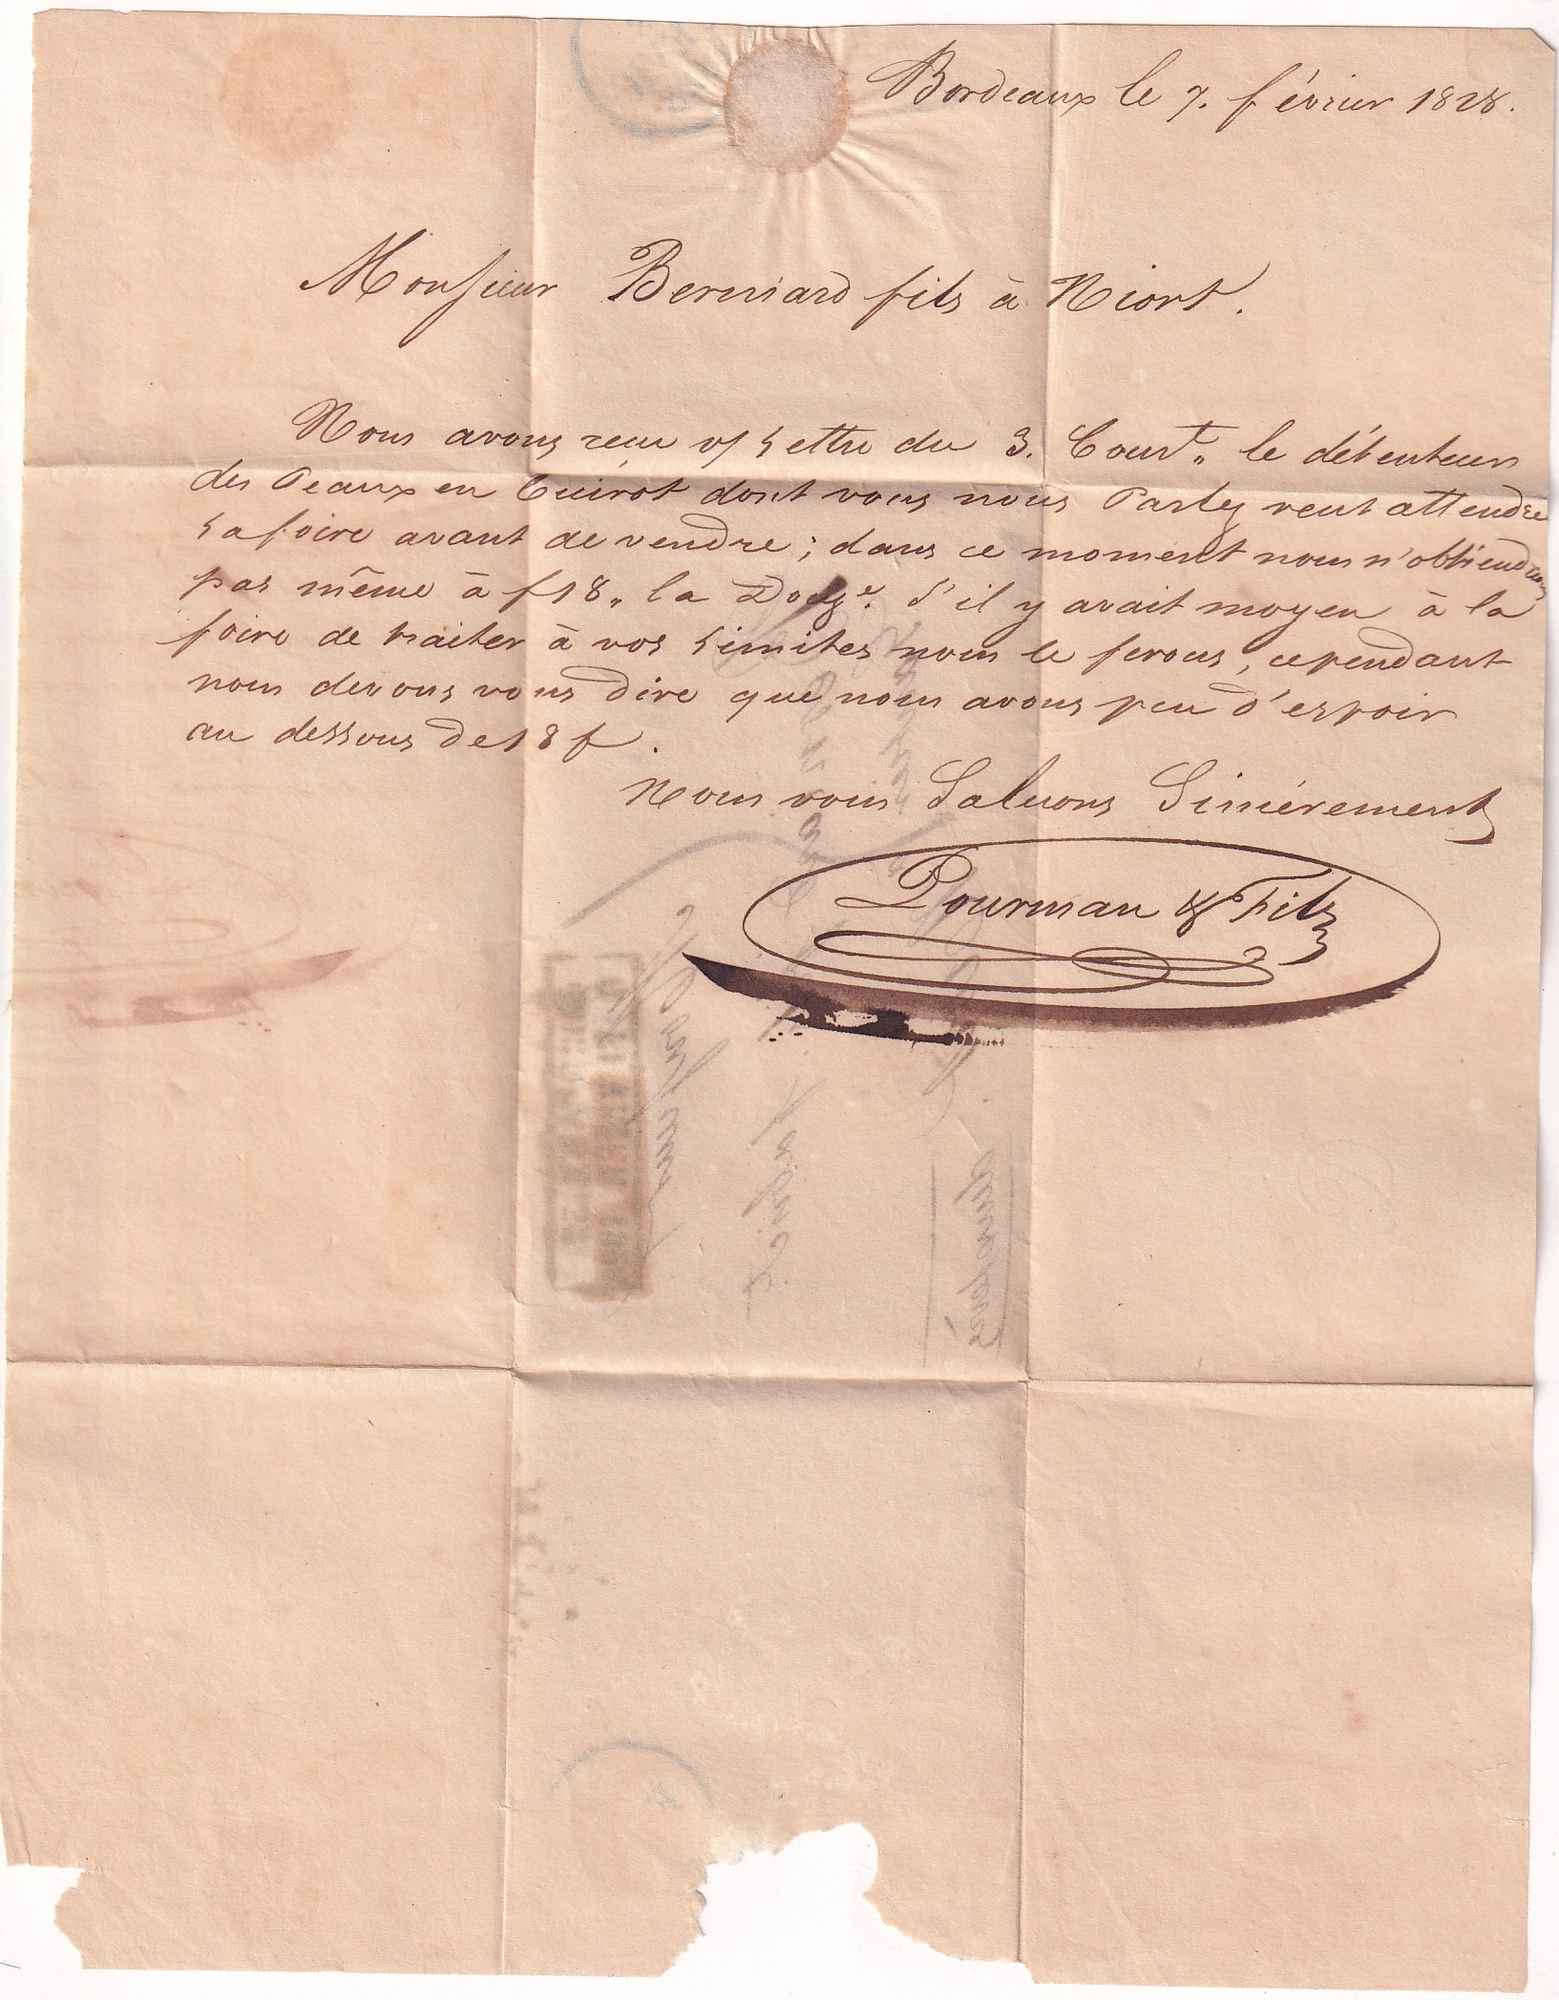 Bordeaux le 7. février 1828.
Monsieur Berniard fils à Niort.
Nous avons reçu v/ Lettre du 3. Cour.t le détenteur
des Peaux en Cuirot dont vous nous Parlez veut attendre
La foire avant de vendre; dans ce moment nous n'obtiendrons
pas même à f 18 „ la Douz.e S'il y avait moyen à la
foire de traiter à vos Limites nous le ferons, cependant
nous devons vous dire que nous avons peu d'espoir
au dessous de 18 f.
Nous vous Saluons Sincérement
Pourman & Fils